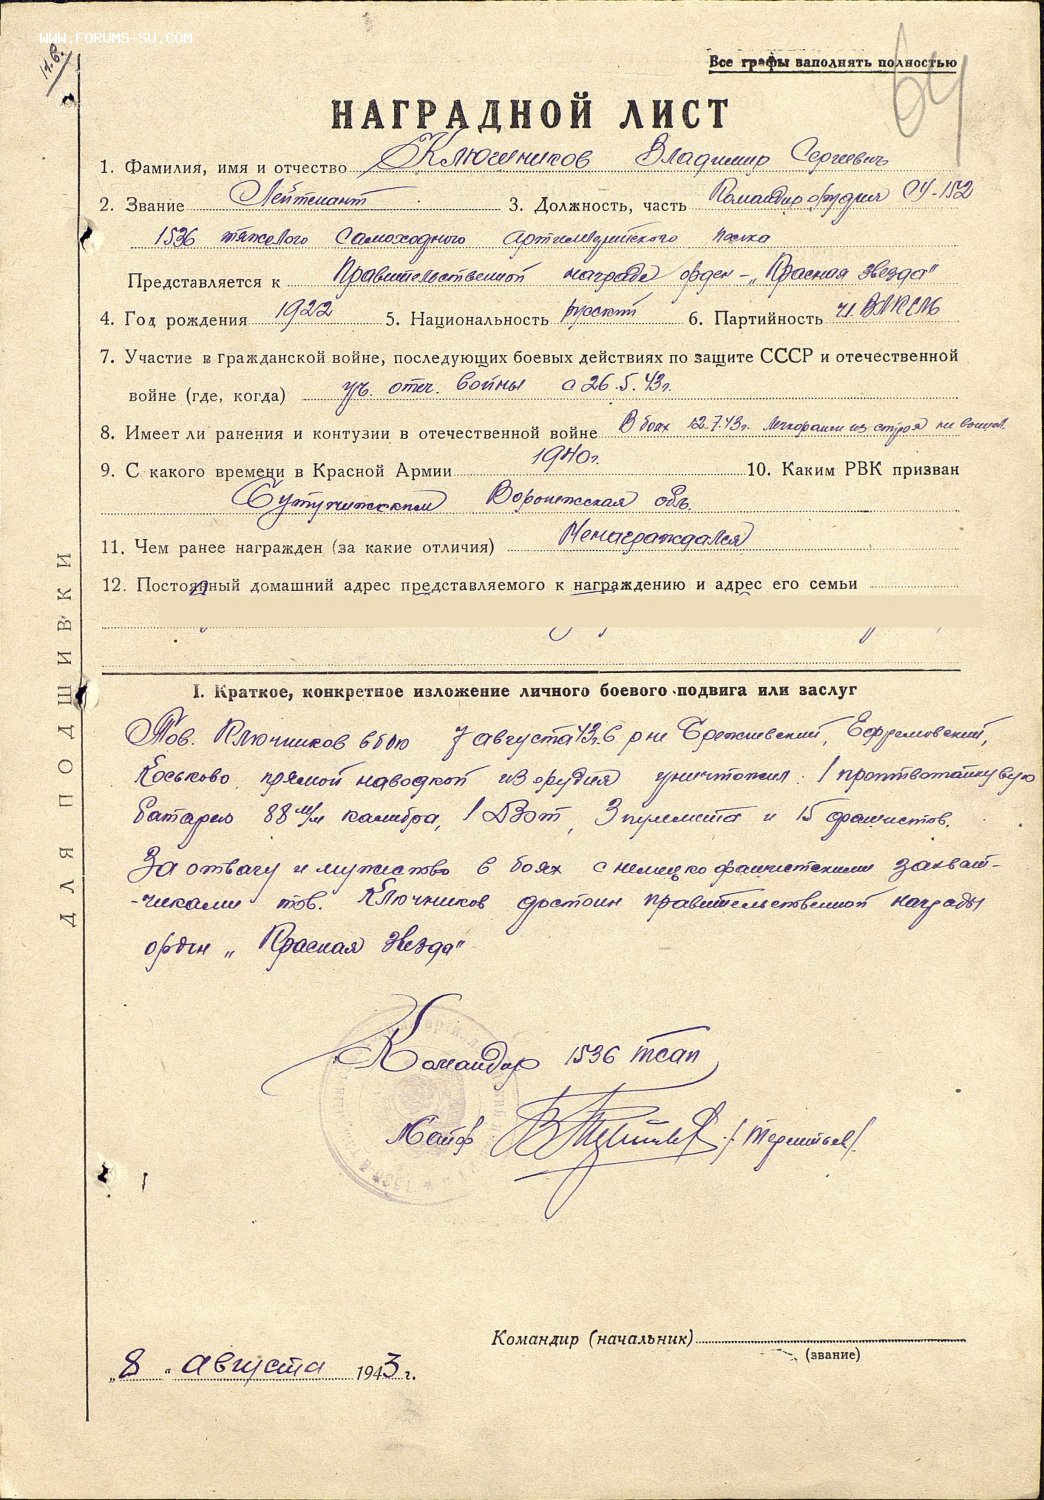 WWW.FORUMS-SU.COM
Все графы заполнять полностью
64
НАГРАДНОЙ ЛИСТ
1. Фамилия, имя и отчество Ключников Владимир Сергеевич
2. Звание Лейтенант 3. Должность, часть Командир орудия СУ-152
1536 тяжелого самоходного артиллерийского полка
Представляется к правительственной награде орден - „Красная звезда"
4. Год рождения 1922 5. Национальность русский 6. Партийность чл. ВЛКСМ
7. Участие в гражданской войне, последующих боевых действиях по защите СССР и отечественной
войне (где, когда) уч. отеч. войны с 26.5.43г.
8. Имеет ли ранения и контузии в отечественной войне В боях 12.7.43г. легкоранен из строя не
9. С какого времени в Красной Армии 1940г. 10. Каким РВК призван
Воронежская обл.
11. Чем ранее награжден (за какие отличия) Ненаграждался
12. Постоянный домашний адрес представляемого к награждению и адрес его семьи
I. Краткое, конкретное изложение личного боевого подвига или заслуг
Тов. Ключников в бою 7 августа 43г. в р-не Ефремовский,
Коськово прямой наводкой из орудия уничтожил: 1 противотанковую
батарею 88 м/м калибра, 1 Дзот, 3 пулемета и 15 фашистов.
За отвагу и мужество в боях с немецко фашистскими захват-
-чиками тов. Ключников достоин правительственной награды
орден „Красная звезда"
Командир 1536 тсап
Майор /Терентьев/.
Командир (начальник)
(звание)
„8" августа 1943 г.
ДЛЯ ПОДШИВКИ